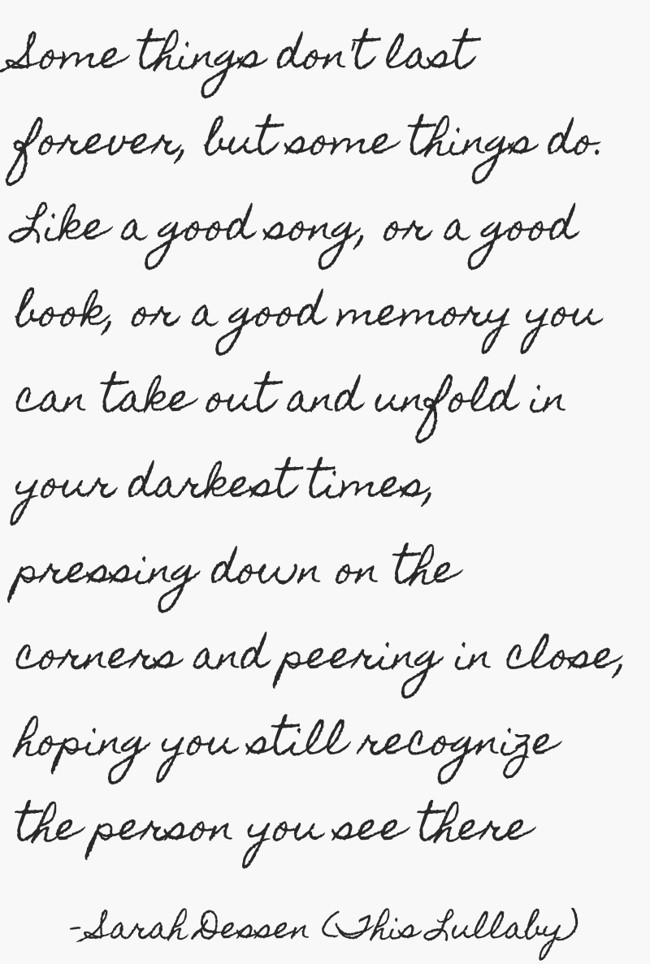 Some things don't last
forever, but some things do.
Like a good song, or a good
book, or a good memory you
can take out and unfold in
your darkest times,
pressing down on the
corners and peering in close,
hoping you still recognize
the person you see there
-Sarah Dessen (This Lullaby)